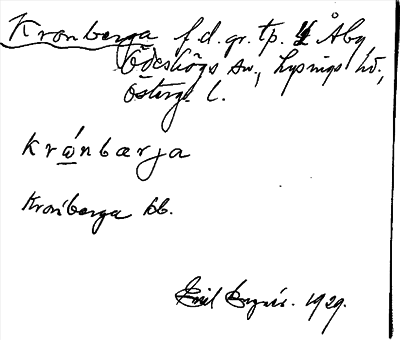 Kronberga f.d. gr. tp. Åby
Ödeshögs sn., Lysings hd.,
Östergl l.
krώnbarja
Kronberga bb.
Emil 1929.